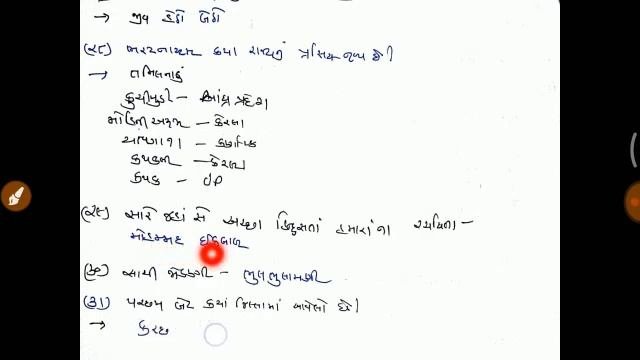 → જીવ
(૨૮) ભરતનાટ્યમ કયા રાજ્યનું પ્રસિદ્ધ નૃત્ય છે।
→ તમિલનાડું
કુચીપુડી - આંધ્ર પ્રદેશ
મોહિની અટ્ટમ - કેરલા
યક્ષગાન - કર્ણાટક
કથકલી - કેરલા
કથક - UP
(૨૯) સારે જહાં સે અચ્છા હિન્દુસતાં હમારાંના રચયિતા -
મોહમ્મદ ઈકબાલ
(૩૦) સાચી જોડણી - ભુલભુલામણી
(૩૧) પરછમ બેટ કયાં જિલ્લામાં આવેલો છે।
→ કચ્છ